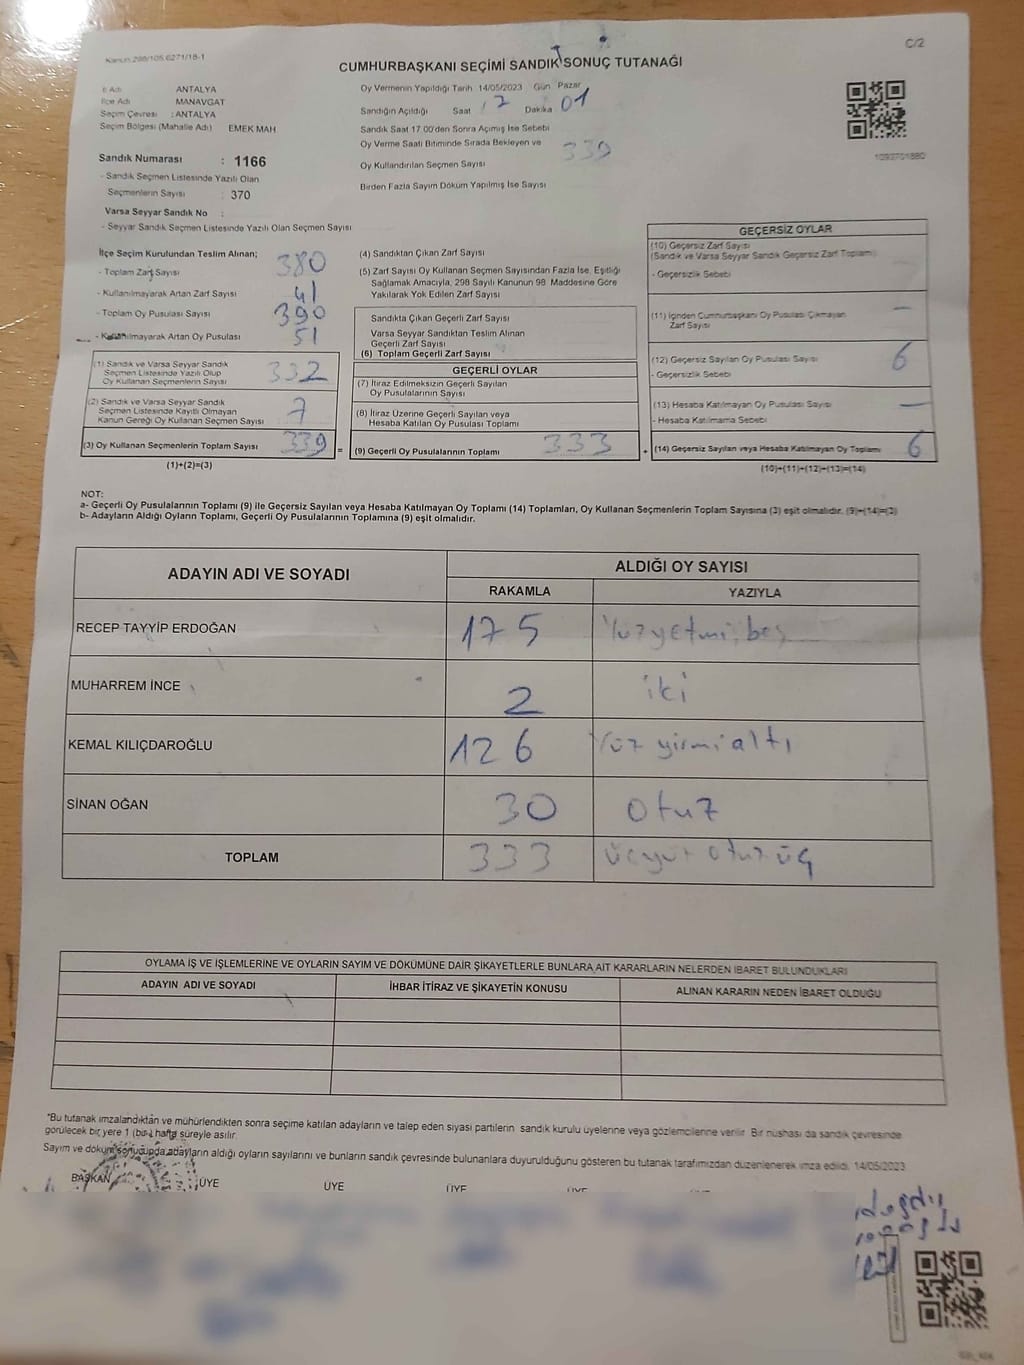 Kanun:298/105,6271/18-1
C/2
CUMHURBAŞKANI SEÇİMİ SANDIK SONUÇ TUTANAĞI
İl Adı ANTALYA
İlçe Adı MANAVGAT
Seçim Çevresi : ANTALYA
Seçim Bölgesi (Mahalle Adı) EMEK MAH
Sandık Numarası : 1166
- Sandık Seçmen Listesinde Yazılı Olan
Seçmenlerin Sayısı : 370
Varsa Seyyar Sandık No :
- Seyyar Sandık Seçmen Listesinde Yazılı Olan Seçmen Sayısı
Oy Vermenin Yapıldığı Tarih 14/05/2023 Gün Pazar
Sandığın Açıldığı Saat 17 Dakika 01
Sandık Saat 17.00'den Sonra Açılmış İse Sebebi
Oy Verme Saati Bitiminde Sırada Bekleyen ve 339
Oy Kullandırılan Seçmen Sayısı
Birden Fazla Sayım Döküm Yapılmış İse Sayısı
1093701880
İlçe Seçim Kurulundan Teslim Alınan;
- Toplam Zarf Sayısı 380
- Kullanılmayarak Artan Zarf Sayısı 41
- Toplam Oy Pusulası Sayısı 390
- Kullanılmayarak Artan Oy Pusulası 51
(1) Sandık ve Varsa Seyyar Sandık
Seçmen Listesinde Yazılı Olup
Oy Kullanan Seçmenlerin Sayısı 332
(2) Sandık ve Varsa Seyyar Sandık
Seçmen Listesinde Kayıtlı Olmayan
Kanun Gereği Oy Kullanan Seçmen Sayısı 7
(3) Oy Kullanan Seçmenlerin Toplam Sayısı 339 =
(1)+(2)=(3)
(4) Sandıktan Çıkan Zarf Sayısı
(5) Zarf Sayısı Oy Kullanan Seçmen Sayısından Fazla İse, Eşitliği
Sağlamak Amacıyla, 298 Sayılı Kanunun 98. Maddesine Göre
Yakılarak Yok Edilen Zarf Sayısı
Sandıkta Çıkan Geçerli Zarf Sayısı
Varsa Seyyar Sandıktan Teslim Alınan
Geçerli Zarf Sayısı
(6) Toplam Geçerli Zarf Sayısı
GEÇERLİ OYLAR
(7) İtiraz Edilmeksizin Geçerli Sayılan
Oy Pusulalarının Sayısı
(8) İtiraz Üzerine Geçerli Sayılan veya
Hesaba Katılan Oy Pusulası Toplamı
(9) Geçerli Oy Pusulalarının Toplamı 333 +
GEÇERSİZ OYLAR
(10) Geçersiz Zarf Sayısı
(Sandık ve Varsa Seyyar Sandık Geçersiz Zarf Toplamı)
- Geçersizlik Sebebi
(11) İçinden Cumhurbaşkanı Oy Pusulası Çıkmayan
Zarf Sayısı —
(12) Geçersiz Sayılan Oy Pusulası Sayısı 6
- Geçersizlik Sebebi
(13) Hesaba Katılmayan Oy Pusulası Sayısı —
- Hesaba Katılmama Sebebi
(14) Geçersiz Sayılan veya Hesaba Katılmayan Oy Toplamı 6
(10)+(11)+(12)+(13)=(14)
NOT:
a- Geçerli Oy Pusulalarının Toplamı (9) ile Geçersiz Sayılan veya Hesaba Katılmayan Oy Toplamı (14) Toplamları, Oy Kullanan Seçmenlerin Toplam Sayısına (3) eşit olmalıdır. (9)+(14)=(3)
b- Adayların Aldığı Oyların Toplamı, Geçerli Oy Pusulalarının Toplamına (9) eşit olmalıdır.
ADAYIN ADI VE SOYADI ALDIĞI OY SAYISI
RAKAMLA YAZIYLA
RECEP TAYYİP ERDOĞAN 175 Yüzyetmişbeş
MUHARREM İNCE 2 iki
KEMAL KILIÇDAROĞLU 126 Yüz yirmialtı
SİNAN OĞAN 30 otuz
TOPLAM 333 üçyüz otuz üç
OYLAMA İŞ VE İŞLEMLERİNE VE OYLARIN SAYIM VE DÖKÜMÜNE DAİR ŞİKAYETLERLE BUNLARA AİT KARARLARIN NELERDEN İBARET BULUNDUKLARI
ADAYIN ADI VE SOYADI İHBAR İTİRAZ VE ŞİKAYETİN KONUSU ALINAN KARARIN NEDEN İBARET OLDUĞU
"Bu tutanak imzalandıktan ve mühürlendikten sonra seçime katılan adayların ve talep eden siyasi partilerin sandık kurulu üyelerine veya gözlemcilerine verilir. Bir nüshası da sandık çevresinde
görülecek bir yere 1 (bir) hafta süreyle asılır.
Sayım ve döküm sonucunda adayların aldığı oyların sayılarını ve bunların sandık çevresinde bulunanlara duyurulduğunu gösteren bu tutanak tarafımızdan düzenlenerek imza edildi. 14/05/2023
BAŞKAN ÜYE ÜYE ÜYE ÜYE